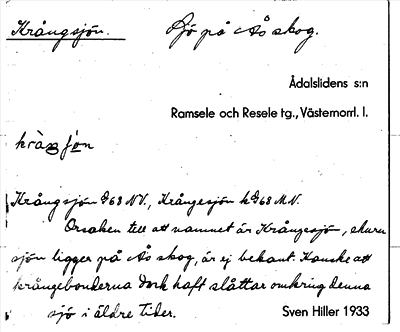 Krångsjön. Sjö på Ås skog.
Ådalslidens s:n
Ramsele och Resele tg., Västernorrl. l.
Krångsjön 68 NV., Krångesjön 68 M.V.
Orsaken till att namnet är Krångesjö, ehuru
sjön ligger på Ås skog, är ej bekant. Kanske att
krångebönderna dock haft slåttar omkring denna
sjö i äldre tider. Sven Hiller 1933